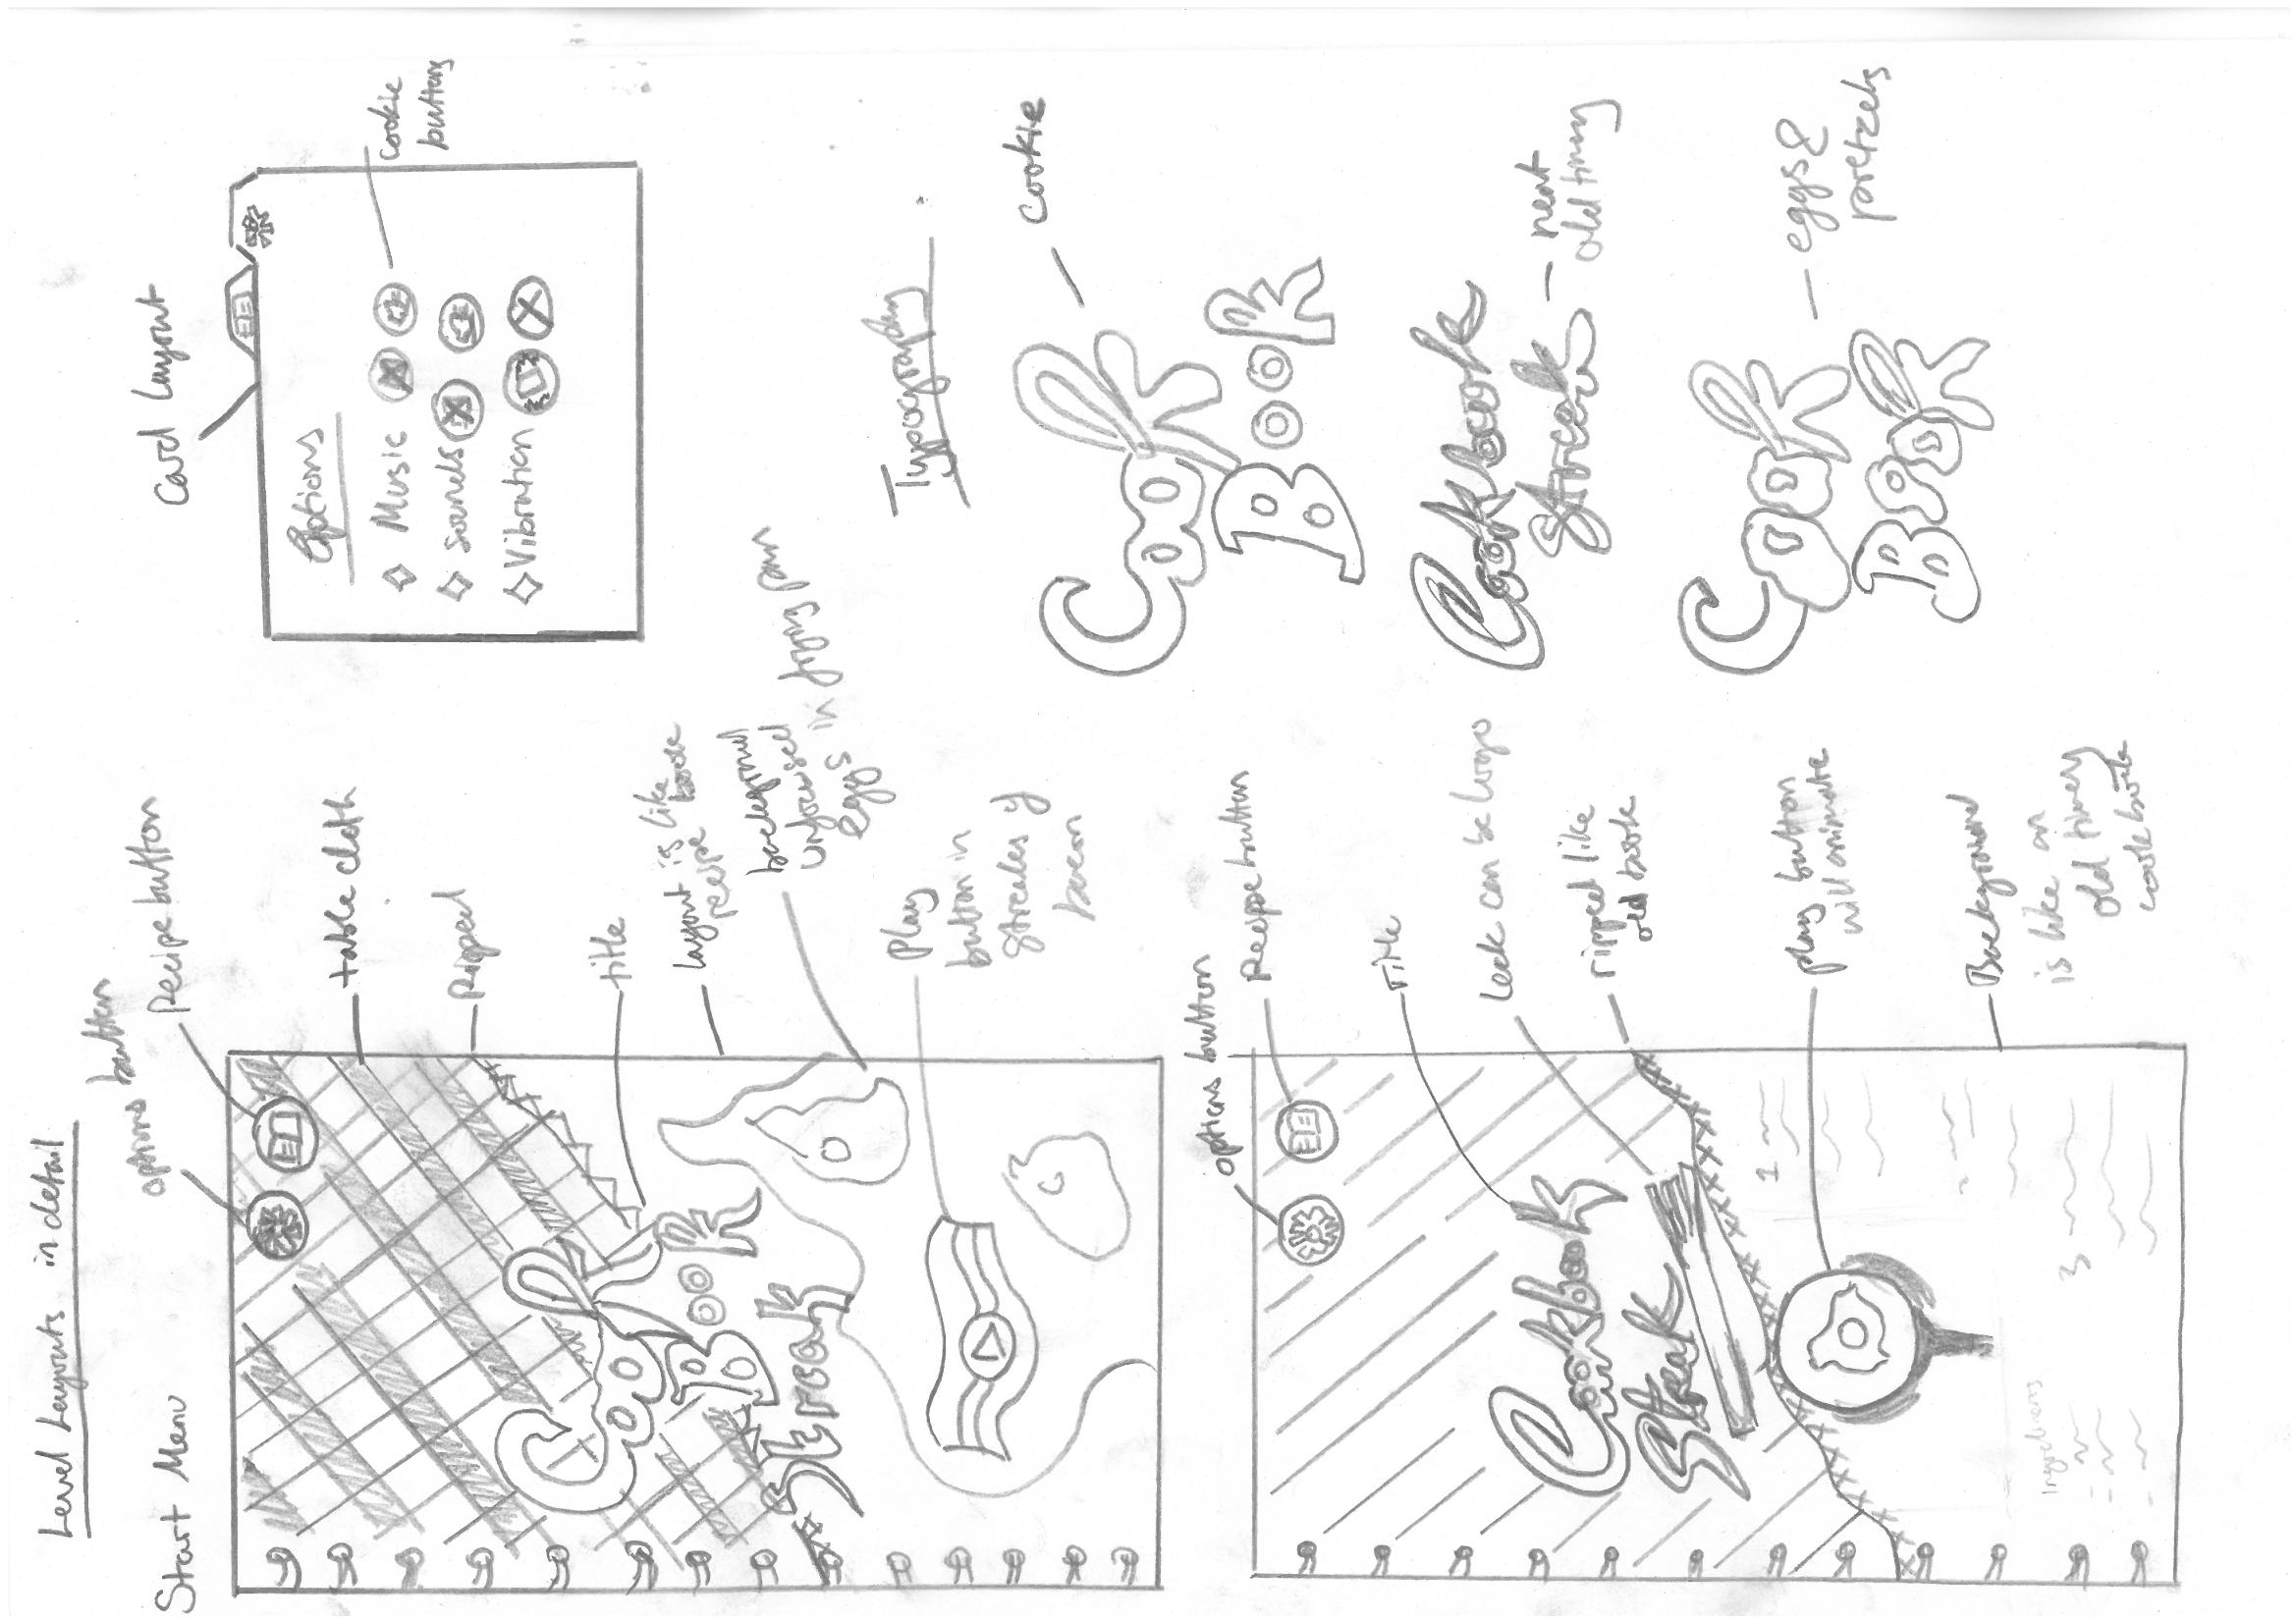 Level Layouts in detail
Start Menu
options button
Recipe button
table cloth
Ripped
title
layout is like
book
background
unfocused
eggs in frying pan
Play
button in
streaks of
bacon
Cook
Book
Streak
options button
Recipe button
title
Leek can be logo
ripped like
old book
play button
will animate
Background
is like an
old timey
cook book
Cookbook
Streak
1
3
Ingredients
Card Layout
Options
Music
Sounds
Vibration
cookie
buttons
Typography
Cook
Book
cookie
Cookbook
Streak
neat
old timey
Cook
Book
eggs &
pretzels